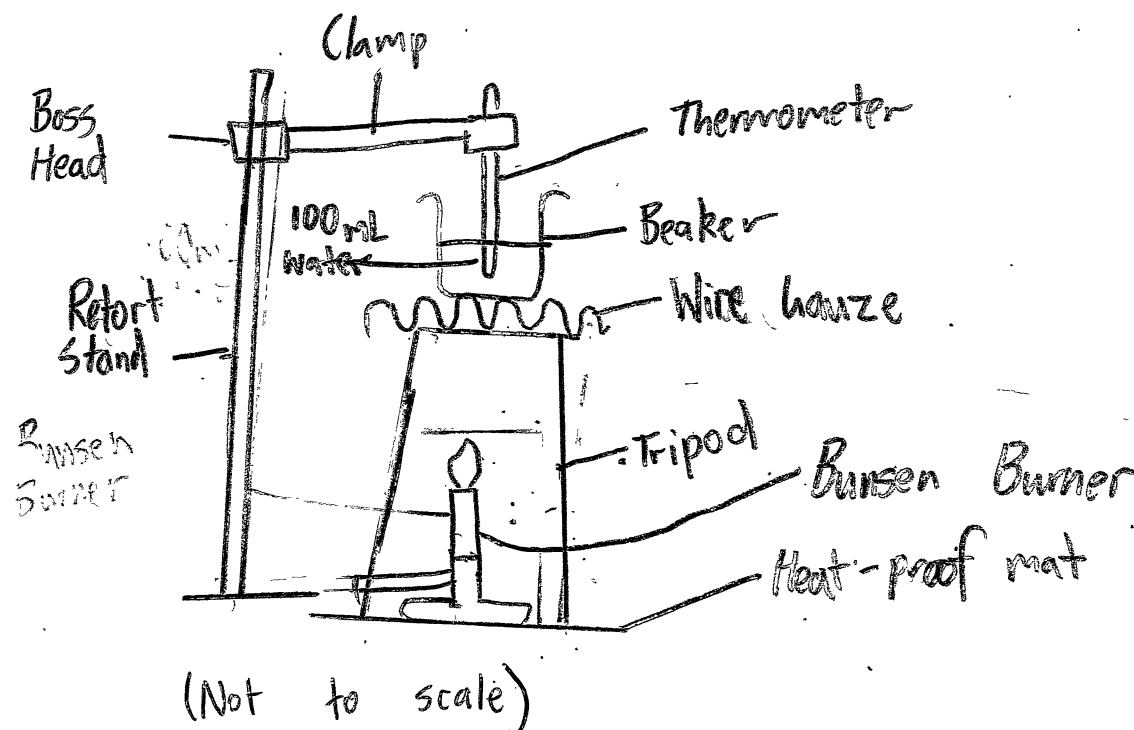 Clamp
Boss
Head
Thermometer
100mL
water
Beaker
Retort
Stand
Wire Gauze
Tripod
Bunsen
Burner
Bunsen Burner
Heat-proof mat
(Not to scale)